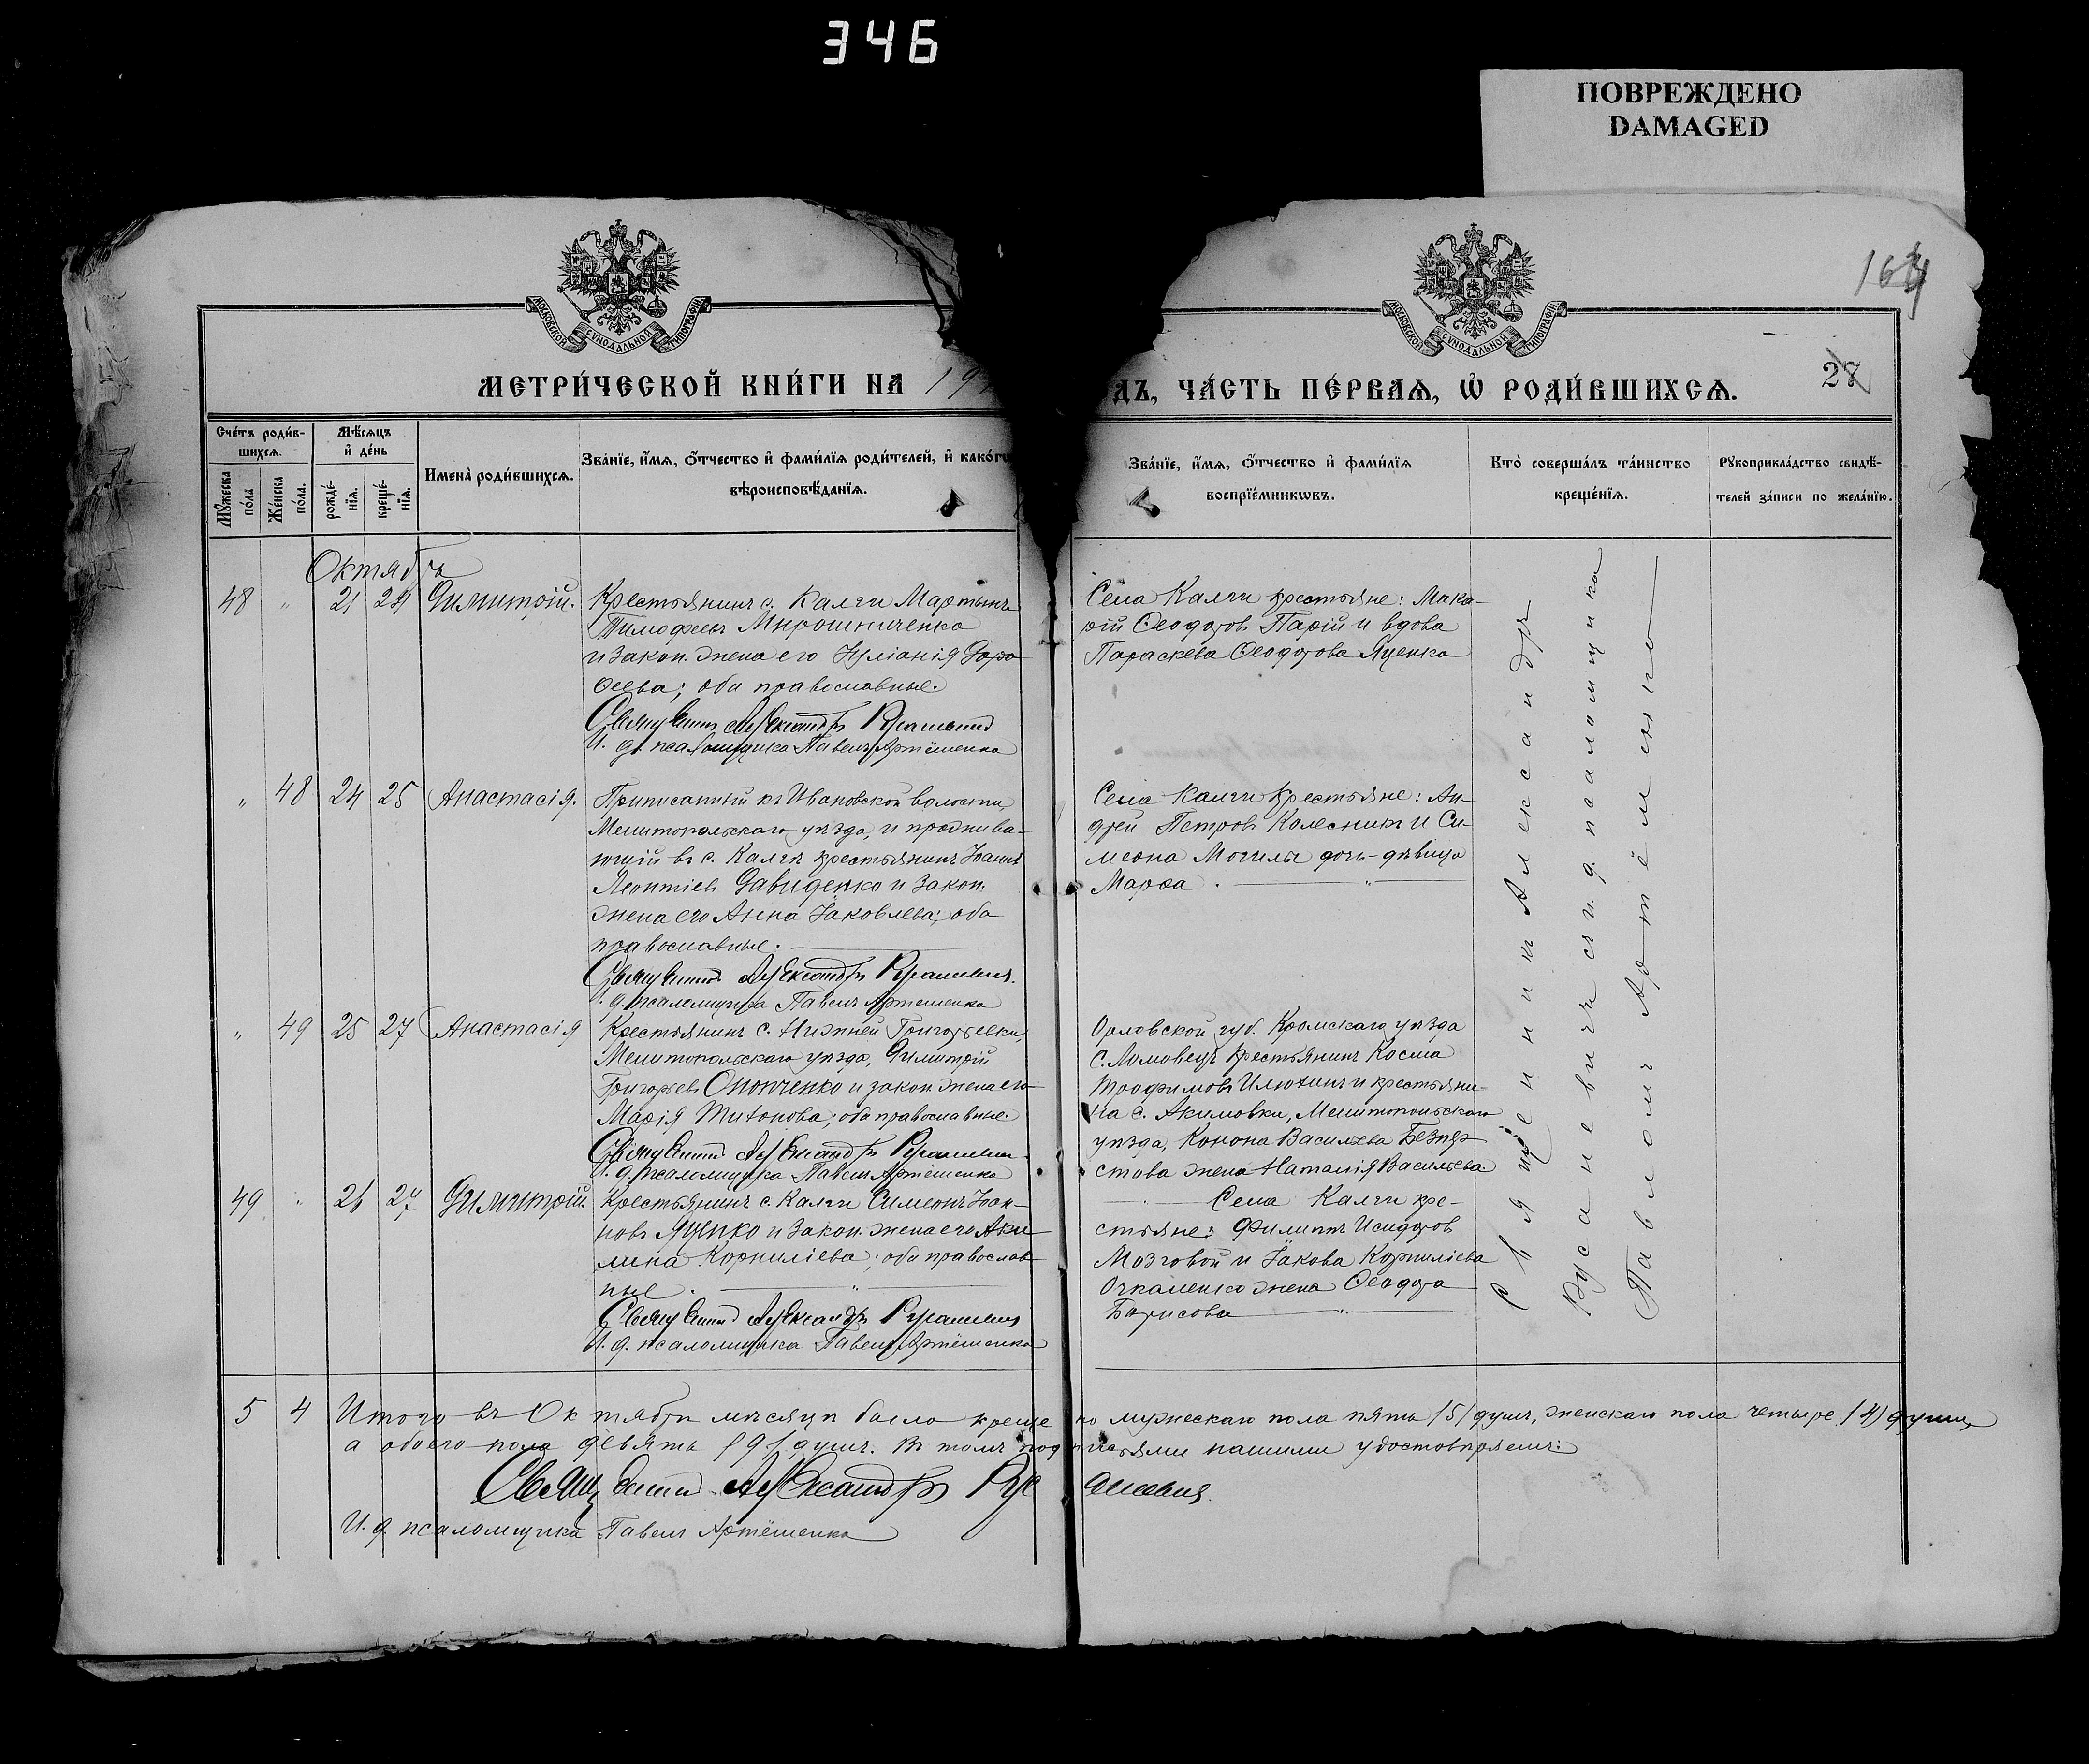 346
ПОВРЕЖДЕНО
DAMAGED
МОСКОВСКОЙ СѴНОДАЛЬНОЙ ТИПОГРАФІИ
МОСКОВСКОЙ СѴНОДАЛЬНОЙ ТИПОГРАФІИ
164
МЕТРИ́ЧЕСКОЙ КНИ́ГИ НА 19
ДЪ, ЧА́СТЬ ПЕ́РВАѦ, Ѽ РОДИ́ВШИХСѦ.
27
Сче́тъ роди́в-
шихсѧ.
Мѣ́сѧцъ
и҆ де́нь
Мꙋ́жеска по́ла
Же́нска по́ла.
рожде́нїѧ.
креще́нїѧ.
Имена̀ роди́вшихсѧ.
Зва́нїе, и҆́мѧ, ѻ҆́тчество и҆ фами́лїѧ роди́телей, и҆ како́гѡ
вѣроисповѣ́данїѧ.
Зва́нїе, и҆́мѧ, ѻ҆́тчество и҆ фами́лїѧ
воспрїе́мникѡвъ.
Кто̀ соверша́лъ та́инство
креще́нїѧ.
Рꙋкоприкла́дство свидѣ́-
телей за́писи по жела́нїю.
Октябрь
48 " 21 24 Димитрій. Крестьянинъ с. Калги Мартынъ
Тимофеевъ Мирошниченко
и закон. жена его Іуліанія Доро
ѳеева; оба православные.
Священникъ Александръ Русаневичъ
И. д. псаломщика Павелъ Артёменко
Села Калги крестьяне: Мака-
рій Ѳеодоровъ Парій и вдова
Параскева Ѳеодорова Яценко
" 48 24 25 Анастасія. Приписанный къ Ивановской волости,
Мелитопольскаго уѣзда, и прожива-
ющій въ с. Калгѣ крестьянинъ Іоаннъ
Леонтіевъ Давиденко и закон.
жена его Анна Іаковлева; оба
православные.
Священникъ Александръ Русаневичъ.
И. д. псаломщика Павелъ Артёменко
Села Калги крестьяне: Ан-
дрей Петровъ Колесникъ и Си-
меона Могилы дочь-дѣвица
Марѳа. "
" 49 25 27 Анастасія Крестьянинъ с. Нижней Григорьевки,
Мелитопольскаго уѣзда, Димитрій
Григорьевъ Онопченко и закон. жена его
Марія Тихонова; оба православные.
Священникъ Александръ Русаневичъ.
И. д. псаломщика Павелъ Артёменко
Орловской губ. Кромскаго уѣзда
с. Ломовецъ крестьянинъ Косма
Трофимовъ Илютинъ и крестьяни-
на с. Акимовки, Мелитопольскаго
уѣзда, Конона Васильева Безпер-
стова жена Наталія Васильева.
49 " 26 27 Димитрій. Крестьянинъ с. Калги Симеонъ Іоан-
новъ Яценко и закон. жена его Аки
лина Корниліева; оба православ
ные. "
Священникъ Александръ Русаневичъ
И. д. псаломщика Павелъ Артёменко
Села Калги кре-
стьяне: Филиппъ Исидоровъ
Мозговой и Іакова Корниліева
Очкаленко жена Ѳеодора
Борисова "
Священникъ Александръ
Русаневичъ съ и. д. псаломщика
Павломъ Артёменко
5 4 Итого въ Октябрѣ мѣсяцѣ было креще но мужескаго пола пять /5/ душъ, женскаго пола четыре /4/ души,
а обоего пола девять /9/ душъ. Въ томъ подписями нашими удостовѣряемъ:
Священникъ Александръ Русаневичъ.
И. д. псаломщика Павелъ Артёменко